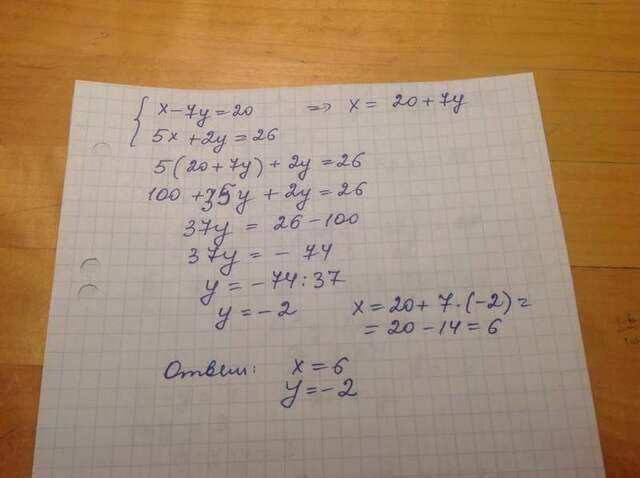 x-7y=20 => x= 20+7y
5x+2y=26
5(20+7y)+2y=26
100+35y+2y=26
37y = 26-100
37y=-74
y=-74:37
y=-2
x=20+7·(-2)=
=20-14=6
Ответ: x=6
y=-2